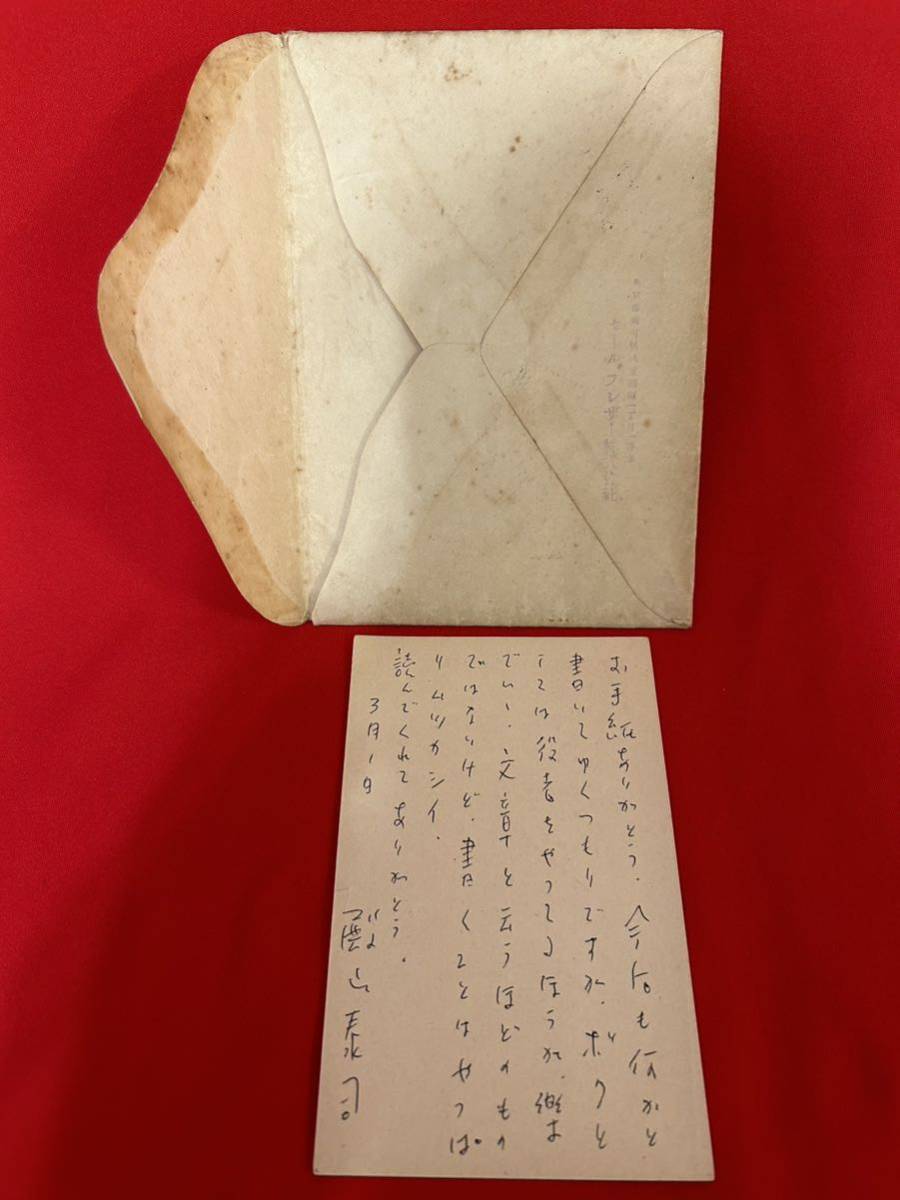 セールプレザー
お手紙ありがとう。今后も何かと
書いてゆくつもりですが、ボクと
しては役者をやってるほうが、楽な
でい、文章と云うほどのもの
ではないけど、書くことはやっぱ
りムツカシイ。
読んでくれてありがとう。
3月1日
殿山泰司